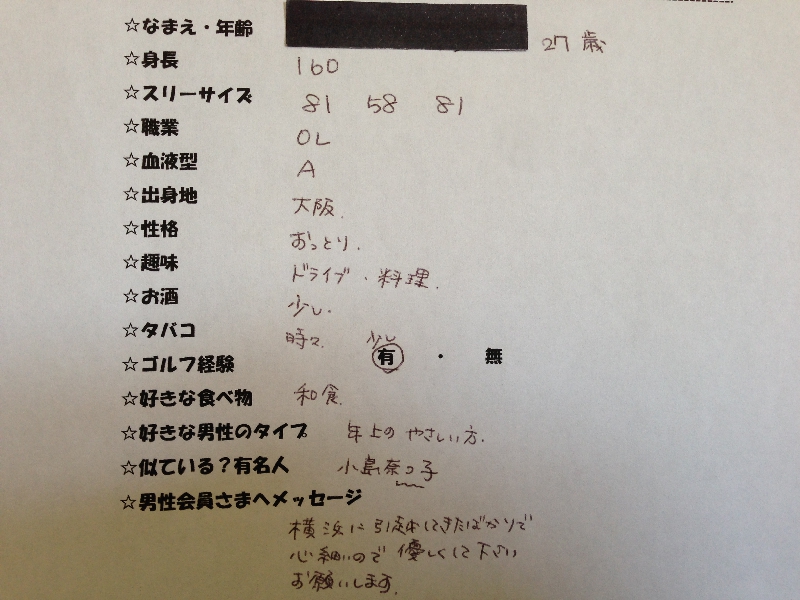 ☆なまえ・年齢 27歳
☆身長 160
☆スリーサイズ 81 58 81
☆職業 OL
☆血液型 A
☆出身地 大阪.
☆性格 おっとり.
☆趣味 ドライブ・料理.
☆お酒 少し.
☆タバコ 時々. 少し
☆ゴルフ経験 有 ・ 無
☆好きな食べ物 和食.
☆好きな男性のタイプ 年上の やさしい方.
☆似ている?有名人 小島奈つ子
☆男性会員さまへメッセージ
横浜に引越してきたばかりで
心細いので 優しくして下さい
お願いします.